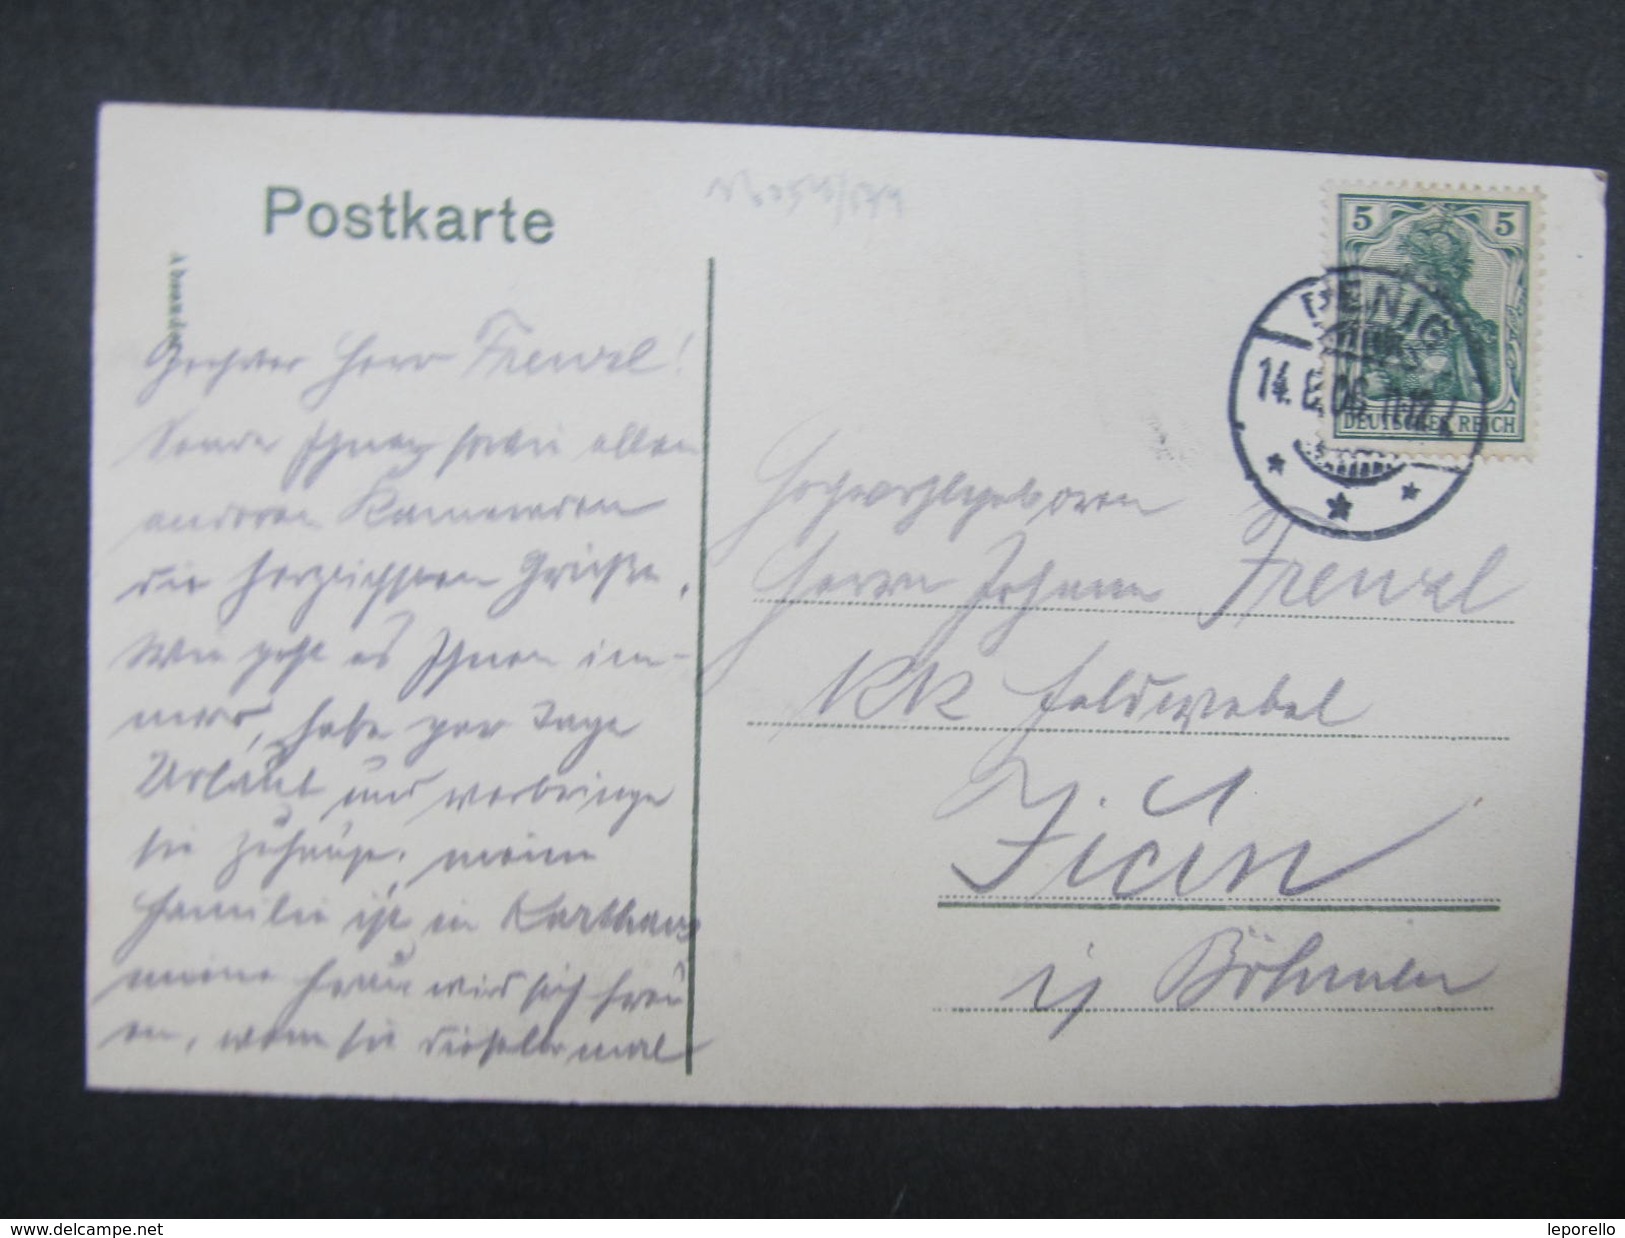 Postkarte
Absender
Geehrter Herr Frenzl!
Sende Ihnen sowie allen
anderen Kameraden
die herzlichsten Grüße.
Wie geht es Ihnen im-
mer, habe par Tage
Urlaub und verbringe
sie zuhause, meine
Familie ist in Karthaus
meine Frau wird sich freu
en, wenn sie
5 5
DEUTSCHES REICH
PENIG
14.8.06. 11-12
Hochwohlgeboren
Herrn Johann Frenzl
KK Feldwebel
Jicin
in Böhmen
www.delcampe.net
leporello